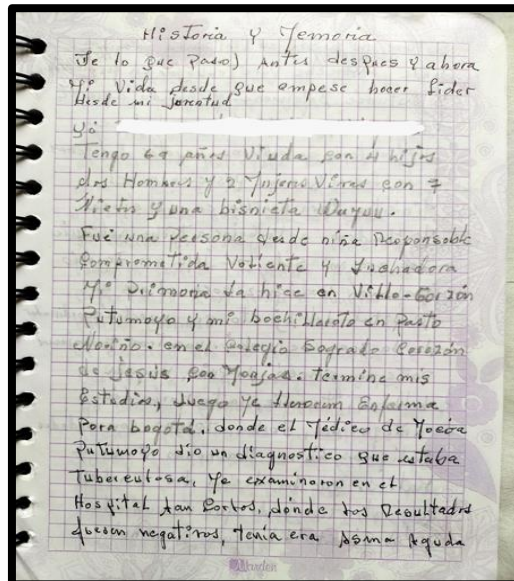 Historia y Memoria
De lo que Paso) Antes despues y ahora
Mi Vida desde que empese hacer Lider
desde mi juventud
yo
Tengo 69 años Viuda con 4 hijos
dos Hombres y 2 Mujeres Vives con 7
Nietos y una bisnieta Wayuu.
Fué una Persona desde niña Responsable
Comprometida Valiente y Luchadora
Mi Primaria la hice en Villa-Garzón
Putumayo y mi bachillerato en Pasto
Nariño. en el Colegio Sagrado Corazón
de Jesús con Monjas. termine mis
Estudios, Luego Me llevaron Enferma
Para bogotá, donde el Médico de Mocoa
Putumayo dio un diagnostico que estaba
Tuberculosa, Me examinaron en el
Hospital San Carlos, dónde los Resultados
fueron negativos, tenía era Asma Aguda